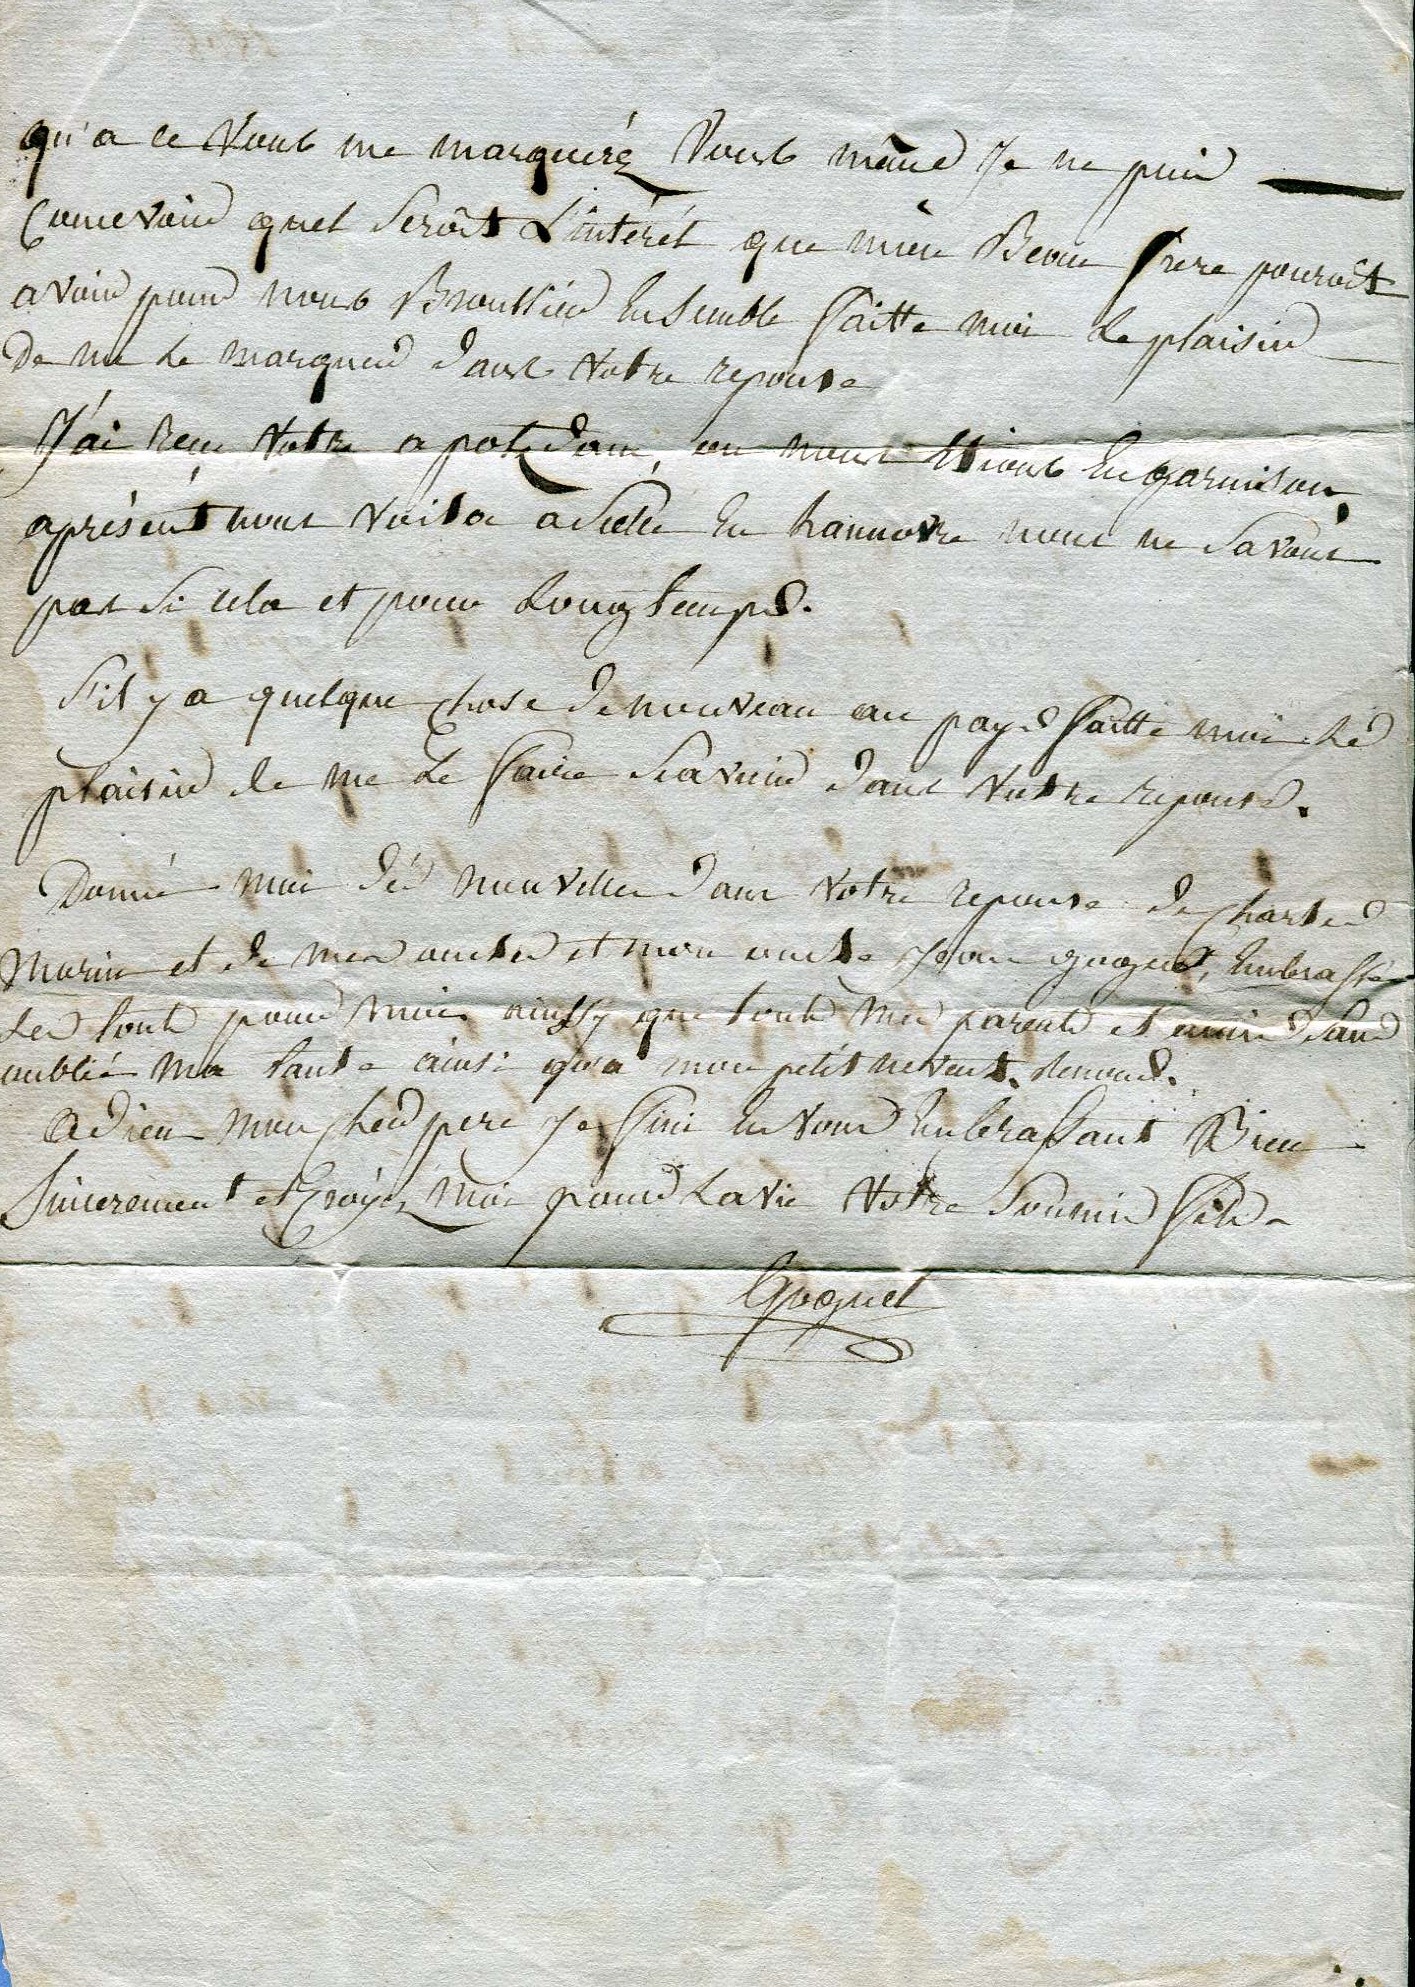 qu'a ce Vous me marqueréz Vous même Je ne puis
Concevoir quel Seroit L'intérét que mon Beau frere pouroit
avoir pour nous Broussier Ensemble faitte moi le plaisir
De me le marquer dans Votre reponse
J'ai Reçu Votre a potzdam, ou nous Etions En garnison,
aprésént nous voila a Selle En hannovre nous ne Savons
pas Si cela et pour Longtemps.
S'il y a quelque Chose de nouveau au pays faitte moi Le
plaisir de me Le faire Scavoir dans Votre reponse.
Donné moi dés nouvelles dans Votre reponse de Charles
Morin et de mes oncles et mon oncle Jean goguet, Embrassé
Les tous pour moi aussy que tous Mes parents et amis Sans
oublié Ma tante ainsi qu'a mon petit neveux.
Adieu mon Cher pere Je fini En vous Embrassant Bien
Sincerement et Croyéz Moi pour La vie Votre Soumis fils
Goguet